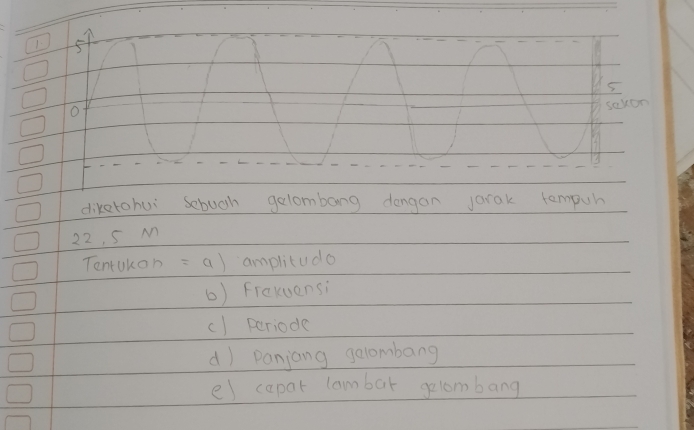 1
5
0
5
sekon
diketahui sebuah gelombang dengan jarak tempuh
22,5 M
Tentukan = a) amplitudo
b) Frekuensi
c) Periode
d) Panjang gelombang
e) cepat lambat gelombang